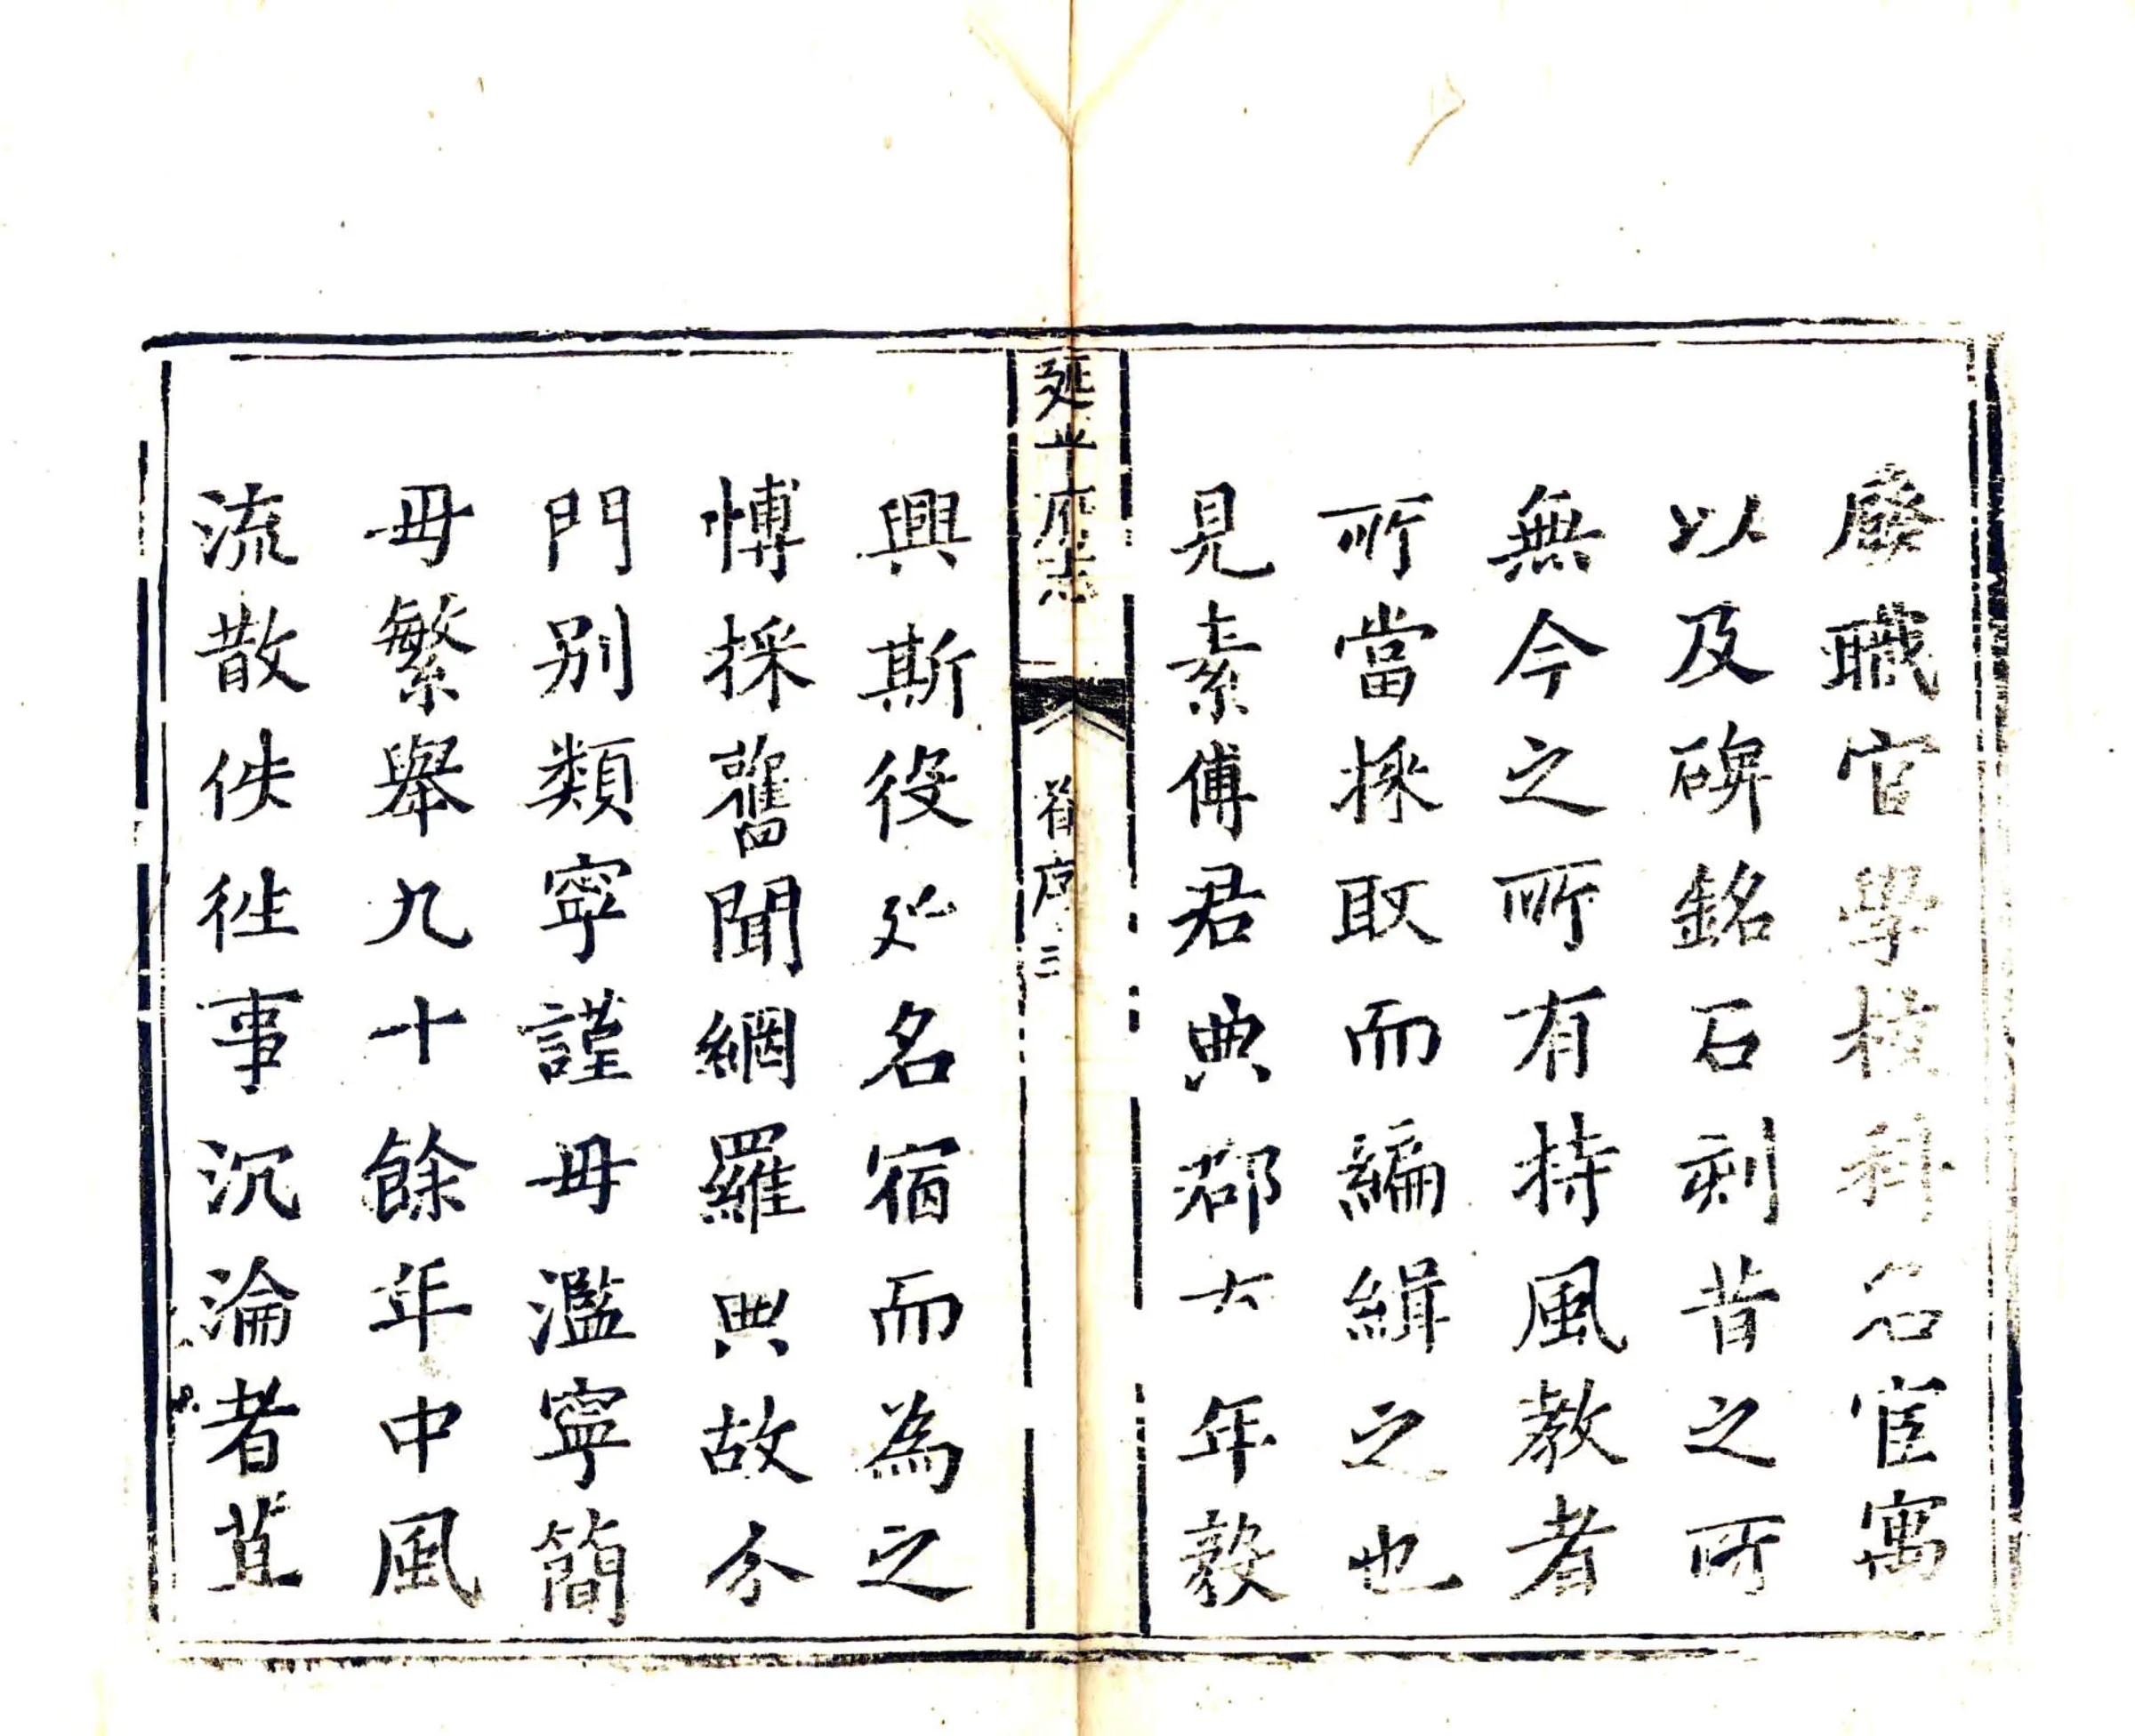 廢職官學校科名宦寓
以及碑銘石刻昔之所
無今之所有持風教者
所當採取而編緝之也
見素傅君典郡六年毅
延平府志
序 三
興斯役延名宿而為之
愽採舊聞網羅典故分
門别類寧謹毋濫寧簡
毋繁舉九十餘年中風
流散佚徃事沉淪者直